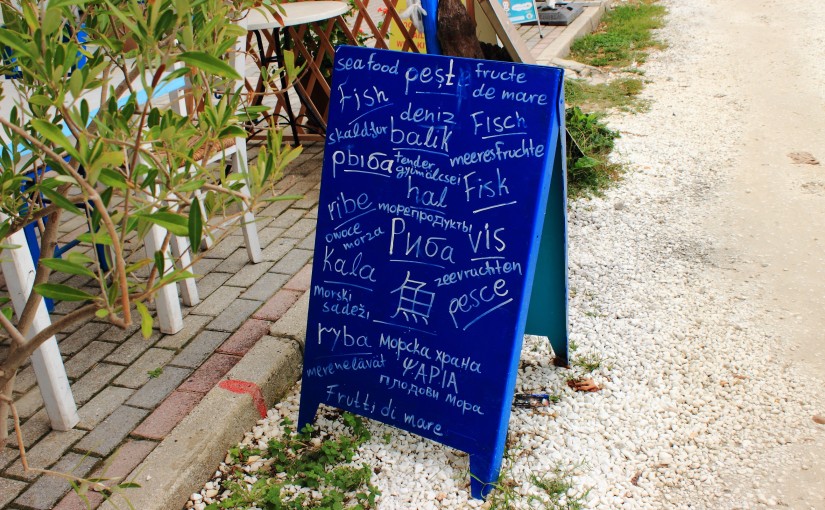 seafood peşt fructe
de mare
Fish
deniz
skaldjur
balik
Fisch
рыба
tender
gyümölcsei
meeresfruchte
hal
Fisk
ribe
морепродукты
owoce
morza
Риба
vis
Kala
zeevruchten
鱼
pesce
morski
sadeži
ryba
Морска храна
merenelävät
ΨΑΡΙΑ
плодови мора
Frutti di mare